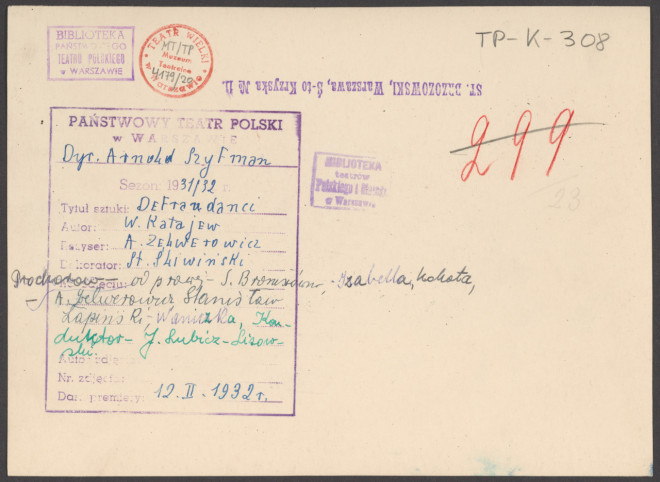 BIBLIOTEKA
PAŃSTWOWEGO
TEATRU POLSKIEGO
w WARSZAWIE
TEATR WIELKI
w Warszawie
MT/TP
Muzeum
Teatralne
4179/20
TP-K-308
ST. BRZOZOWSKI, Warszawa, Ś-to Krzyska № 11.
299
23
PAŃSTWOWY TEATR POLSKI
w WARSZAWIE
Dyr. Arnold Szyfman
Sezon: 1931/32 r.
Tytuł sztuki: DEFraudanci
Autor: W. Katajew
Reżyser: A. ZELWEROWICZ
Dekorator: St. Śliwiński
Prochorow — od prawej - S. Broniszówna - Izabella, kokota,
A. Zelwerowicz, Stanisław
Łapiński - Waniczka, Kon-
duktor - J. Lubicz-Lisow-
ski.
Nr. zdjęcia:
Dat. premjery: 12. II. 1932 r.
BIBLIOTEKA
teatrów
Polskiego i Małego
w Warszawie